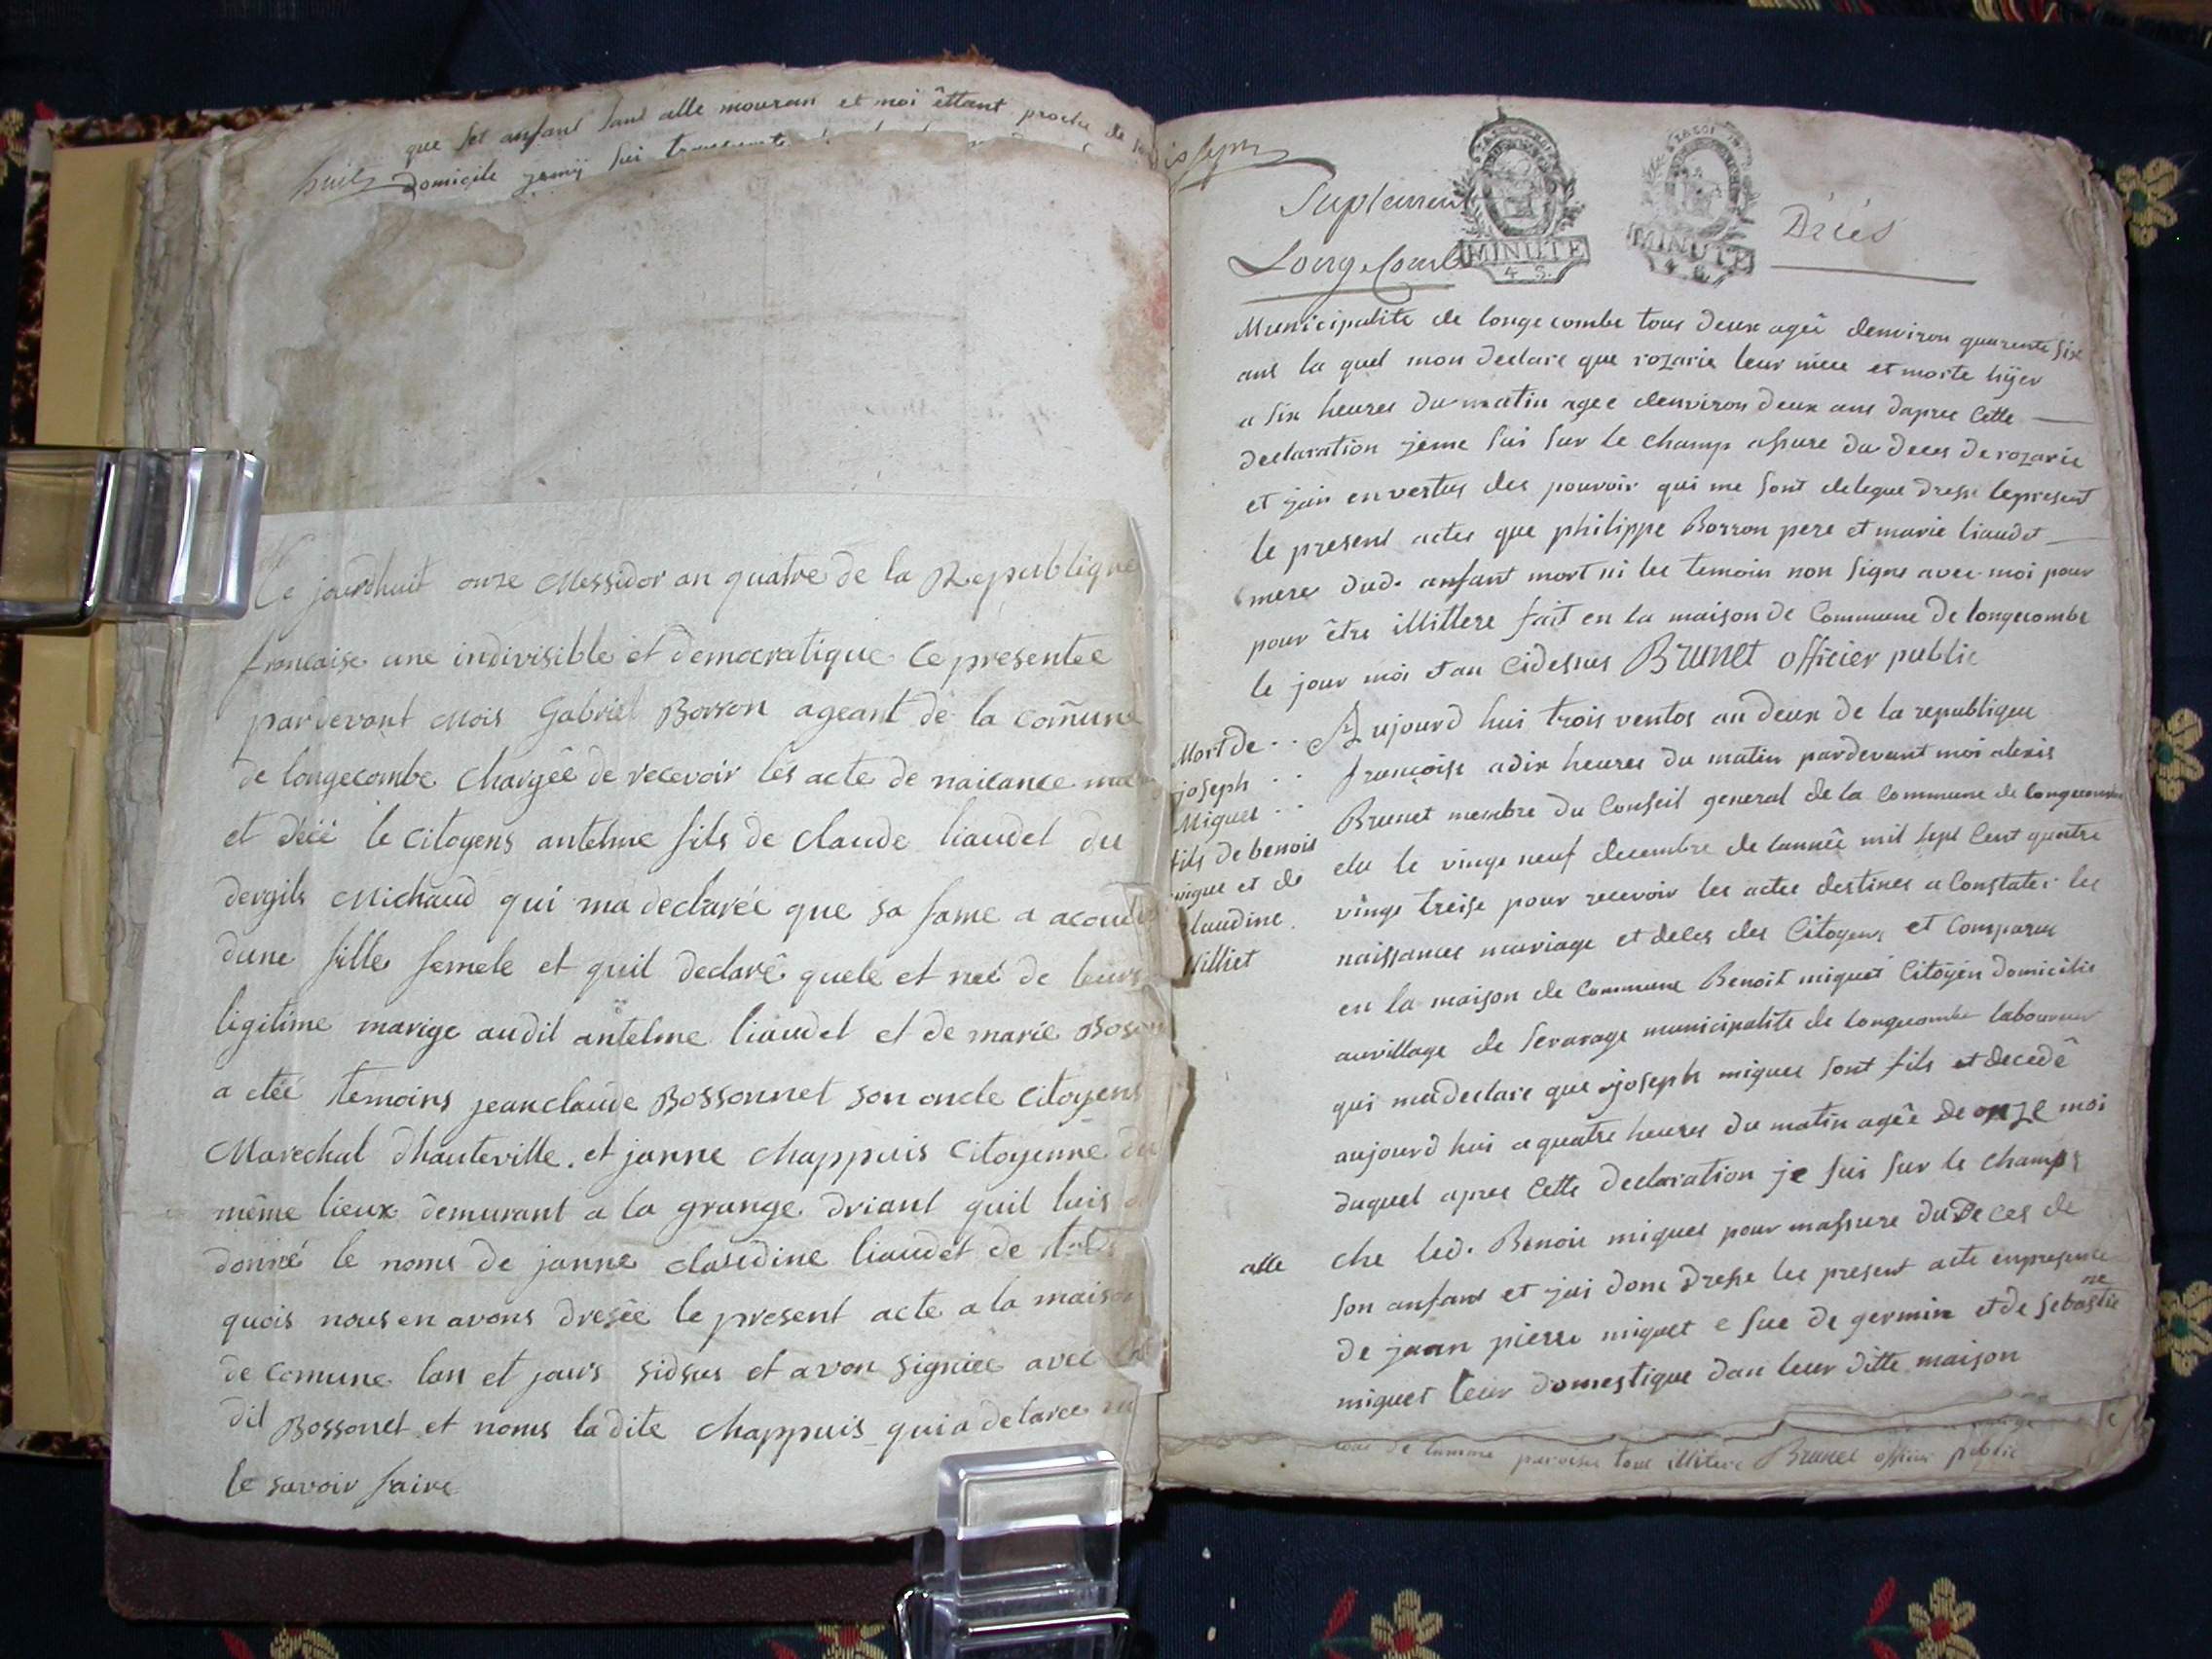 que set anfant sant alle mouran et moi êttant proche de
huit domicile
Ce jourdhuit onze Messidor an quatre de la Republique
francaise une indivisible et democratique Ce presentee
pardevant Mois Gabriel Borron ageant de la comune
de longecombe chargée de recevoir les acte de naicance
et décé le Citoyens antelme fils de claude liaudet du
dergits Michaud qui ma declarée que sa fame a
dune fille femele et quil declarê quele et neé de leurs
ligitime marige audit antelme liaudet et de marie
a etéé temoins jeanclaude Bossonnet son oncle Citoyens
Marechal dhauteville et janne chappuis Citoyenne du
même lieux demurant a la grange driant quil luis a
donné le noms de janne claudine liaudet de
quois nous en avons dreséé le present acte a la maison
de comune lan et jours sidsus et avon signiéé avec
dit Bossonet et noms la dite chappuis qui a delaree
le savoir faire
Suplement
Longecombe
MINUTE
4 S.
MINUTE
4 S.
Décés
Municipalite de longecombe tous deux ageî denviron quarente six
ans la quel mon declare que rozarie leur niece et morte hÿer
a six heures du matin agee denviron deux ans dapres Cette
declaration jème sui sur le champ assure du deces de rozarie
et jai en vertus des pouvoir qui me sont delegue dresse lepresent
le present actes que philippe Borron pere et marie liaudet
mere dud. anfant mort ni les temoin non signe avec moi pour
pour être illittere fait en la maison de Commune de longecombe
le jour moi et an Cidessus Brunet officier public
Mort de
joseph
Miguet
fils de benois
migue et de
claudine
Villiet
Aujourd hui trois ventos an deux de la republique
françoise a dix heures du matin pardevant moi alexis
Brunet membre du Conseil general de la Commune de longecombe
elu le vingt neuf decembre de lannêe mil sept Cent quatre
vingt treise pour recevoir les actes destines a Constater les
naissances mariage et deles des Citoyens et Comparus
en la maison de Commune Benoit miguet Citoyen domicilie
au village de servarage municipalite de longecombe laboureur
qui ma declare que joseph miguet sont fils et decedê
aujourd hui a quatre heures du matin agêe de onze moi
duquel apres Cette declaration je sui sur le champs
alle che led. Benoit miguet pour massure du deces de
son anfant et jai donc dresse les present acte enpresence
de jean pierre miguet e sue de germin et de sebastie
ne
miguet leur domestique dan leur ditte maison
tous illitere Brunet officier public